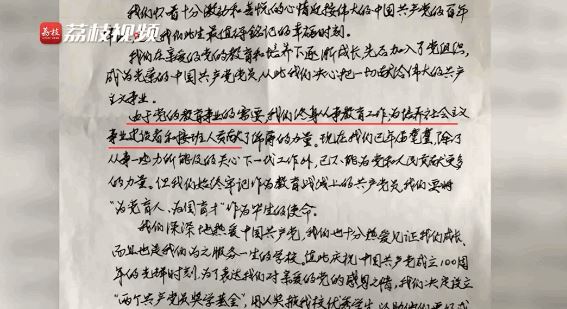 荔枝
荔枝视频
我们怀着十分激动和喜悦的心情迎接伟大的中国共产党的百年
我们此生最值得铭记的幸福时刻。
我们在亲爱的党的教育和培养下逐渐成长先后加入了党组织,
成为光荣的中国共产党党员从此我们决心把一切献给伟大的共产
主义事业。
由于党的教育事业的需要,我们终身从事教育工作,为培养社会主义
事业建设者和接班人贡献了绵薄的力量。现在我们已年届耄耋,除了
从事一些力所能及的关心下一代工作外,已不能为党和人民贡献更多
的力量。但我们始终牢记作为教育战线上的共产党员,我们要将
“为党育人、为国育才”作为毕生的使命。
我们深深地热爱中国共产党,我们也十分热爱见证我们成长、
而且也是我们为之服务一生的学校。值此庆祝中国共产党成立100周
年的光辉时刻,为了表达我们对亲爱的党的感恩之情,我们决定设立
“两个共产党员奖学基金”,用以奖掖我校优秀学生